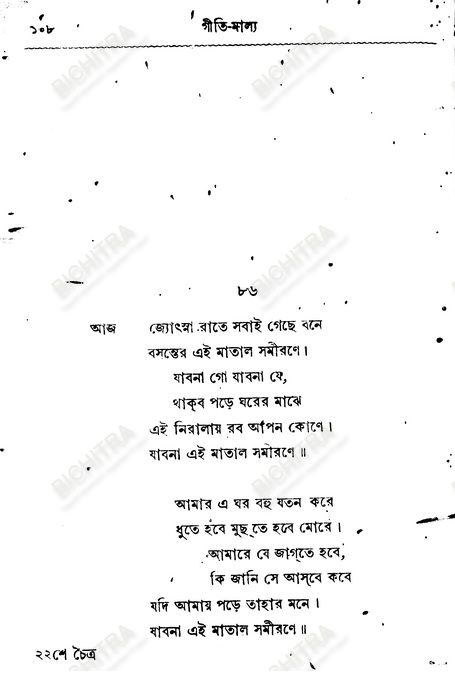 ১০৮ গীতি-মাল্য
৮৬
আজ জ্যোৎস্না রাতে সবাই গেছে বনে
বসন্তের এই মাতাল সমীরণে।
যাবনা গো যাবনা যে,
থাক্‌ব পড়ে ঘরের মাঝে
এই নিরালায় রব আপন কোণে।
যাবনা এই মাতাল সমীরণে॥
আমার এ ঘর বহু যতন করে
ধুতে হবে মুছ্‌তে হবে মোরে।
আমারে যে জাগ্‌তে হবে,
কি জানি সে আস্‌বে কবে
যদি আমায় পড়ে তাহার মনে।
যাবনা এই মাতাল সমীরণে॥
২২শে চৈত্র
BICHITRA
BICHITRA
BICHITRA
BICHITRA
BICHITRA
BICHITRA
BICHITRA
BICHITRA